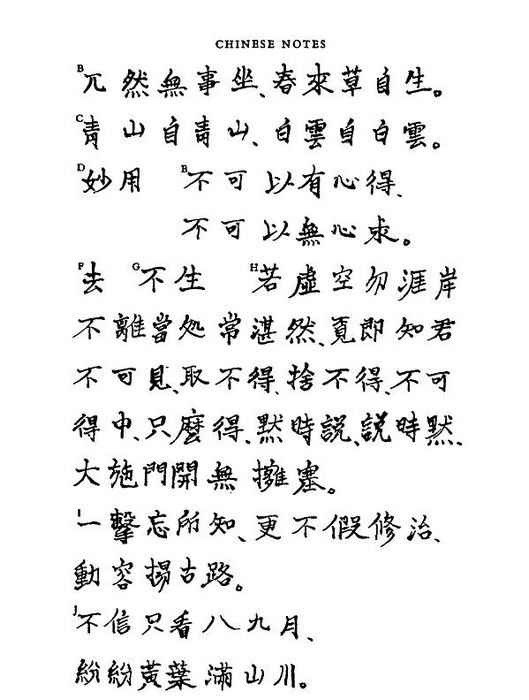 CHINESE NOTES
B兀然無事坐、春來草自生。
C青山自青山、白雲自白雲。
D妙用 E不可以有心得、
不可以無心求。
F去 G不生 H若虛空勿涯岸
不離當処常湛然、覓即知君
不可見、取不得、捨不得、不可
得中、只麼得、默時説、説時默、
大施門開無擁塞。
I一擊忘所知、更不假修治、
動容揚古路。
J不信只看八九月、
紛紛黃葉滿山川。